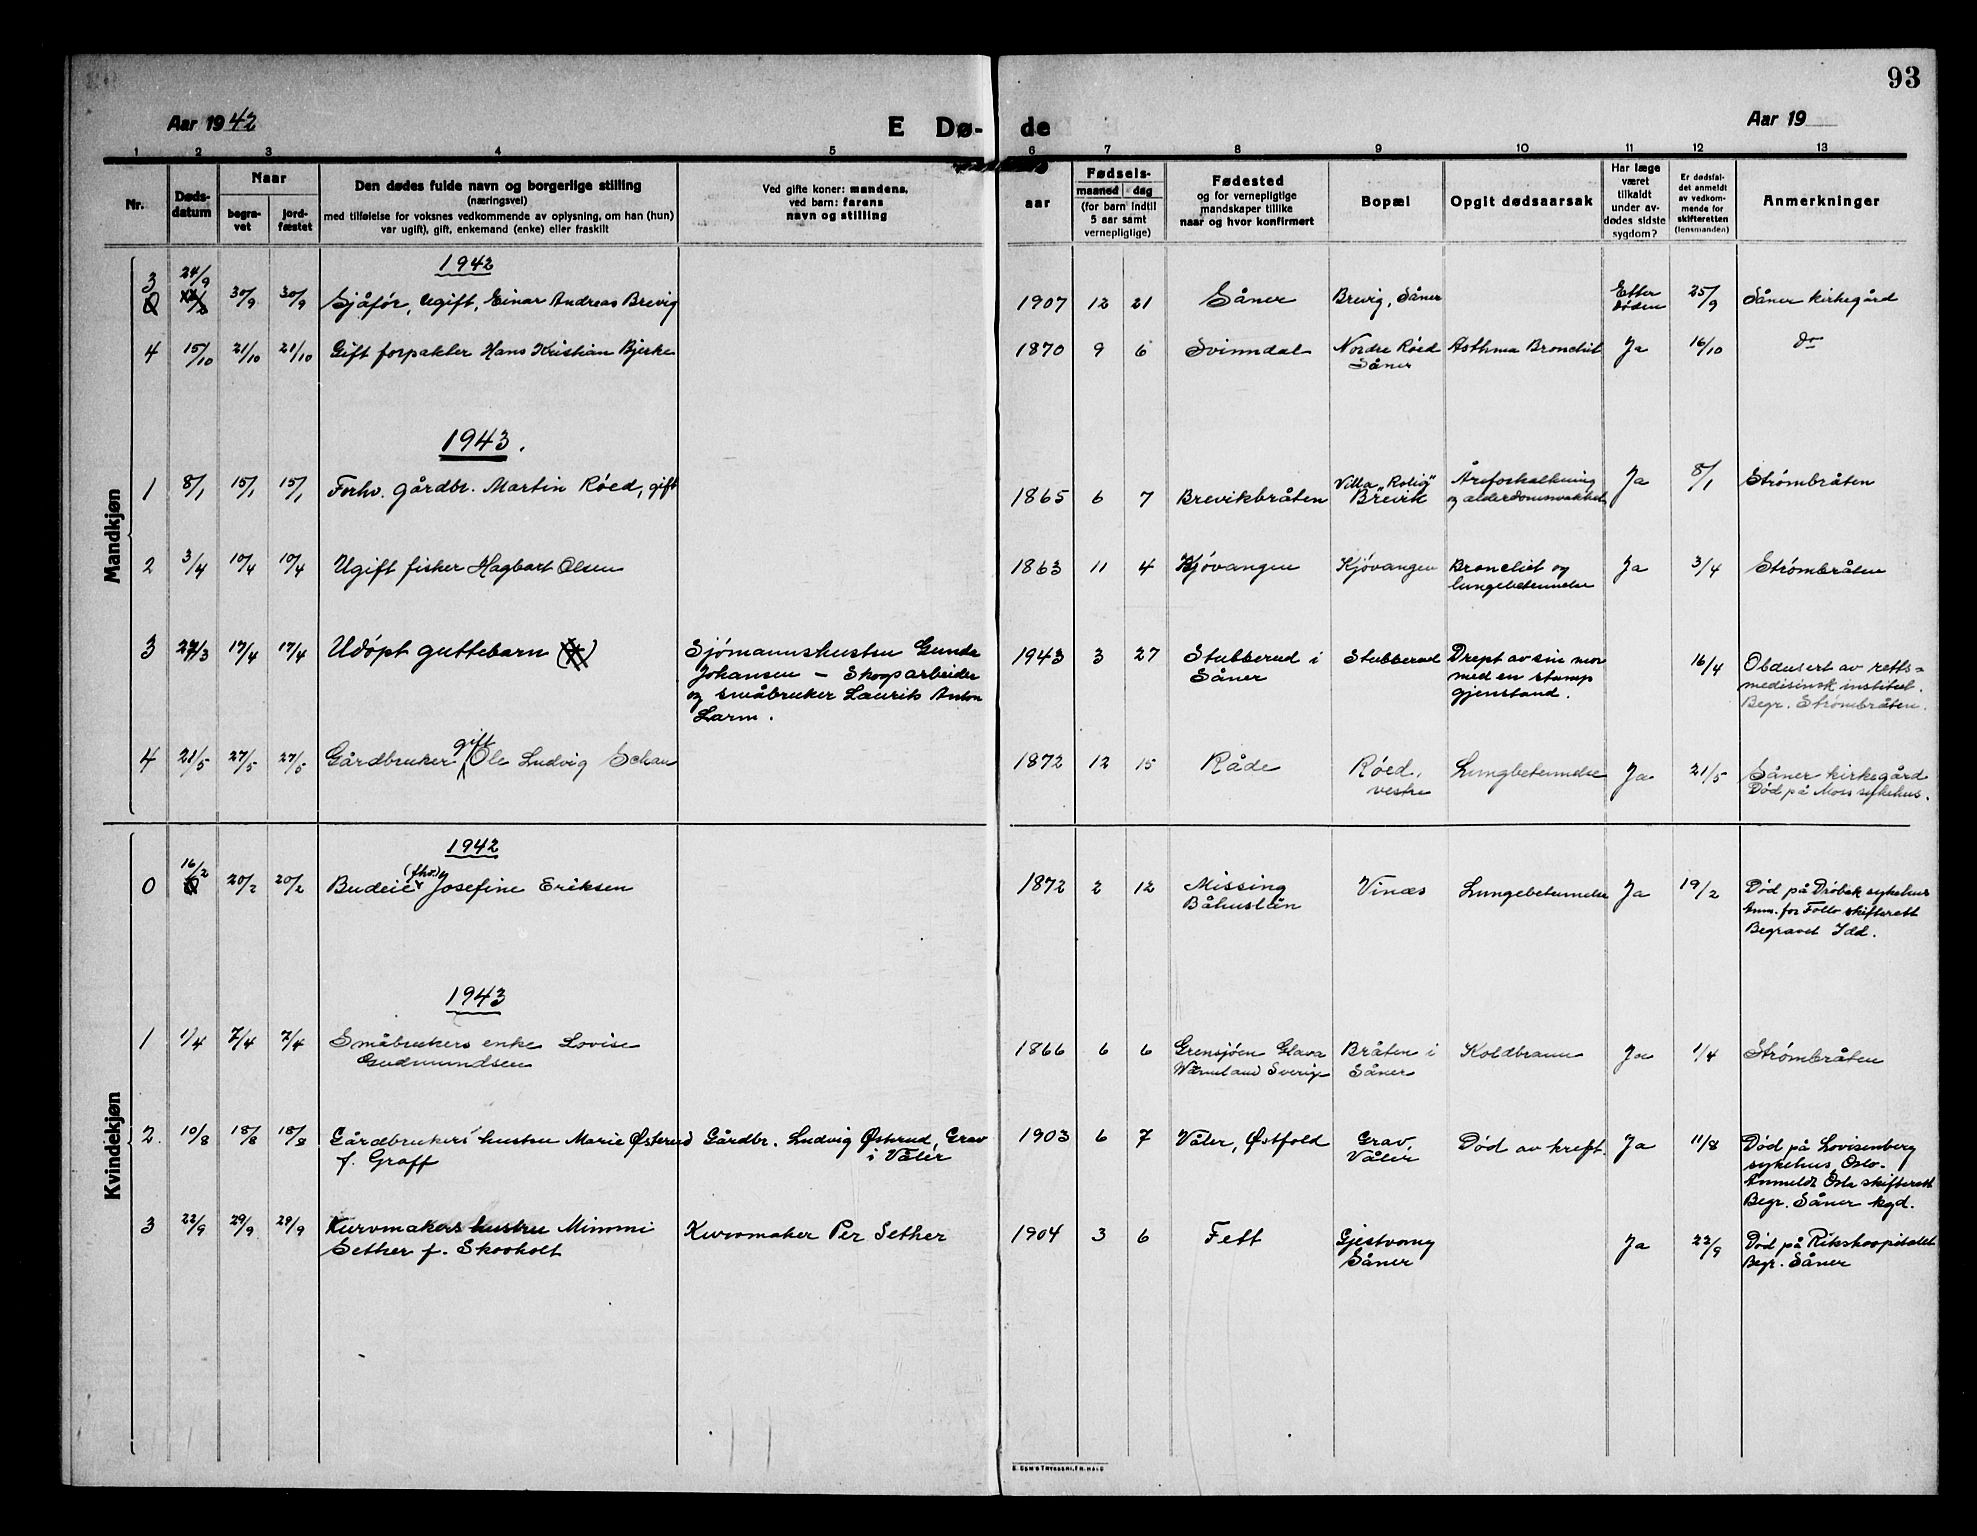 93
Aar 1942
E Dø- de
Aar 19
1 2 3 4 5 6 7 8 9 10 11 12 13
Nr.
Døds-
datum
Naar
begra-
vet
jord-
fæstet
Den dødes fulde navn og borgerlige stilling
(næringsvei)
med tilføielse for voksnes vedkommende av oplysning, om han (hun)
var ugift), gift, enkemand (enke) eller fraskilt
Ved gifte koner: mandens,
ved barn: farens
navn og stilling
aar
Fødsels-
maaned dag
(for barn indtil
5 aar samt
vernepligtige)
Fødested
og for vernepligtige
mandskaper tillike
naar og hvor konfirmert
Bopæl
Opgit dødsaarsak
Har læge
været
tilkaldt
under av-
dødes sidste
sygdom?
Er dødsfal-
det anmeldt
av vedkom-
mende for
skifteretten
(lensmanden)
Anmerkninger
Mandkjøn
1942
3 24/9 30/9 30/9 Sjåfør, ugift, Einar Andreas Brevig 1907 12 21 Såner Brevig, Såner Etter døden 25/9 Såner kirkegård
4 15/10 21/10 21/10 Gift forpakter Hans Kristian Bjerke 1870 9 6 Svinndal Nordre Røed Såner Asthma Bronchit Ja 16/10 do
1943.
1 8/1 15/1 15/1 Forhv. gårdbr. Martin Røed, gift 1865 6 7 Brevikbråten Villa "Rolig" Brevik Åreforkalkning og alderdomssvakhet Ja 8/1 Strømbråten
2 3/4 10/4 10/4 Ugift fisker Hagbart Olsen 1863 11 4 Kjøvangen Kjøvangen Bronchit og lungebetennelse Ja 3/4 Strømbråten
3 27/3 17/4 17/4 Udøpt guttebarn Sjømannshustru Gunda
Johansen – Skogsarbeider
og småbruker Laurits Anton
Larm.
1943 3 27 Stubberud i Såner Stubberud Drept av sin mor
med en stump
gjenstand.
16/4 Obdusert av retts-
medisinsk institut.
Begr. Strømbråten.
4 21/5 27/5 27/5 Gårdbruker gift Ole Ludvig Schau 1872 12 15 Råde Røed, vestre Lungbetennelse Ja 21/5 Såner kirkegård
Død på Moss sykehus.
Kvindekjøn
1942
0 16/2 20/2 20/2 Budeie (fhv.) Josefine Eriksen 1872 2 12 Missing Båhuslän Vinæs Lungebetennelse Ja 19/2 Død på Drøbak sykehus
Anm. for Follo skifterett
Begravet Idd.
1943
1 1/4 7/4 7/4 Småbrukers enke Lovise
Gudmundsen
1866 6 6 Grensjøen Glava
Värmland Sverige
Bråten i Såner Koldbrann Ja 1/4 Strømbråten
2. 10/8 18/8 18/8 Gårdbrukers hustru Marie Østerud
f. Graff
Gårdbr. Ludvig Østerud, Grav
i Våler
1903 6 7 Våler, Østfold Grav, Våler Død av kreft. Ja 11/8 Død på Lovisenberg
sykehus Oslo.
Anmeldt Oslo skifterett
Begr. Såner kgd.
3 22/9 29/9 29/9 Kurvmakers hustru Mimmi
Sether f. Skooholt
Kurvmaker Per Sether 1904 3 6 Fett Gjestvang Såner Ja 22/9 Død på Rikshospitalet
Begr. Såner